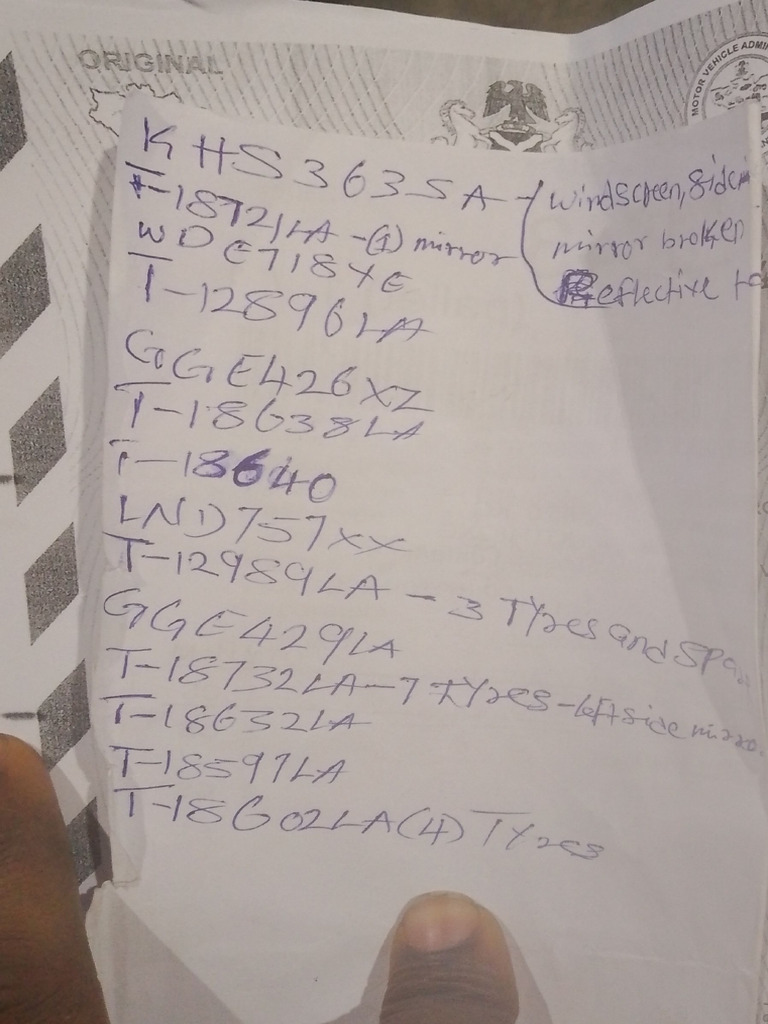 ORIGINAL
MOTOR VEHICLE ADMI
KHS363SA - windscreen, side
mirror broken
Reflective
T-18721LA - (1) mirror
WDE718XE
T-12896LA
GGE426XZ
T-18638LA
T-18640
LND757XX
T-12989LA - 3 Tyres and Spa
GGE429LA
T-18732LA - 7 Tyres - left side mirro
T-18632LA
T-18597LA
T-18602LA (4) Tyres